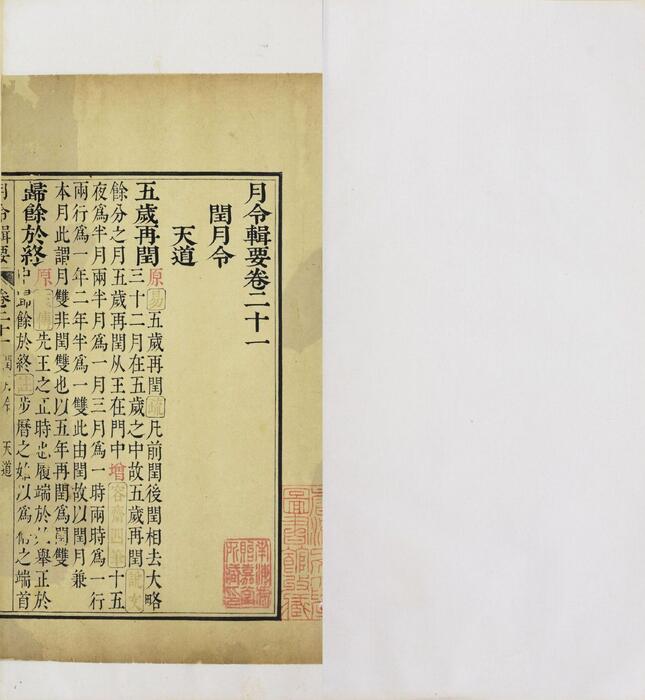 月令輯要卷二十一
閏月令
天道
五歲再閏原易五歲再閏疏凡前閏後閏相去大略
三十二月在五歲之中故五歲再閏說文
餘分之月五歲再閏从王在門中增容齋四筆十五
夜爲半月兩半月爲一月三月爲一時兩時爲一行
兩行爲一年二年半爲一雙此由閏故以閏月兼
本月此謂月雙非閏雙也以五年再閏爲閏雙
歸餘於終原傳先王之正時也履端於始舉正於
中歸餘於終註步曆之始以爲術之端首
月令輯要 卷二十一 閏月令 天道